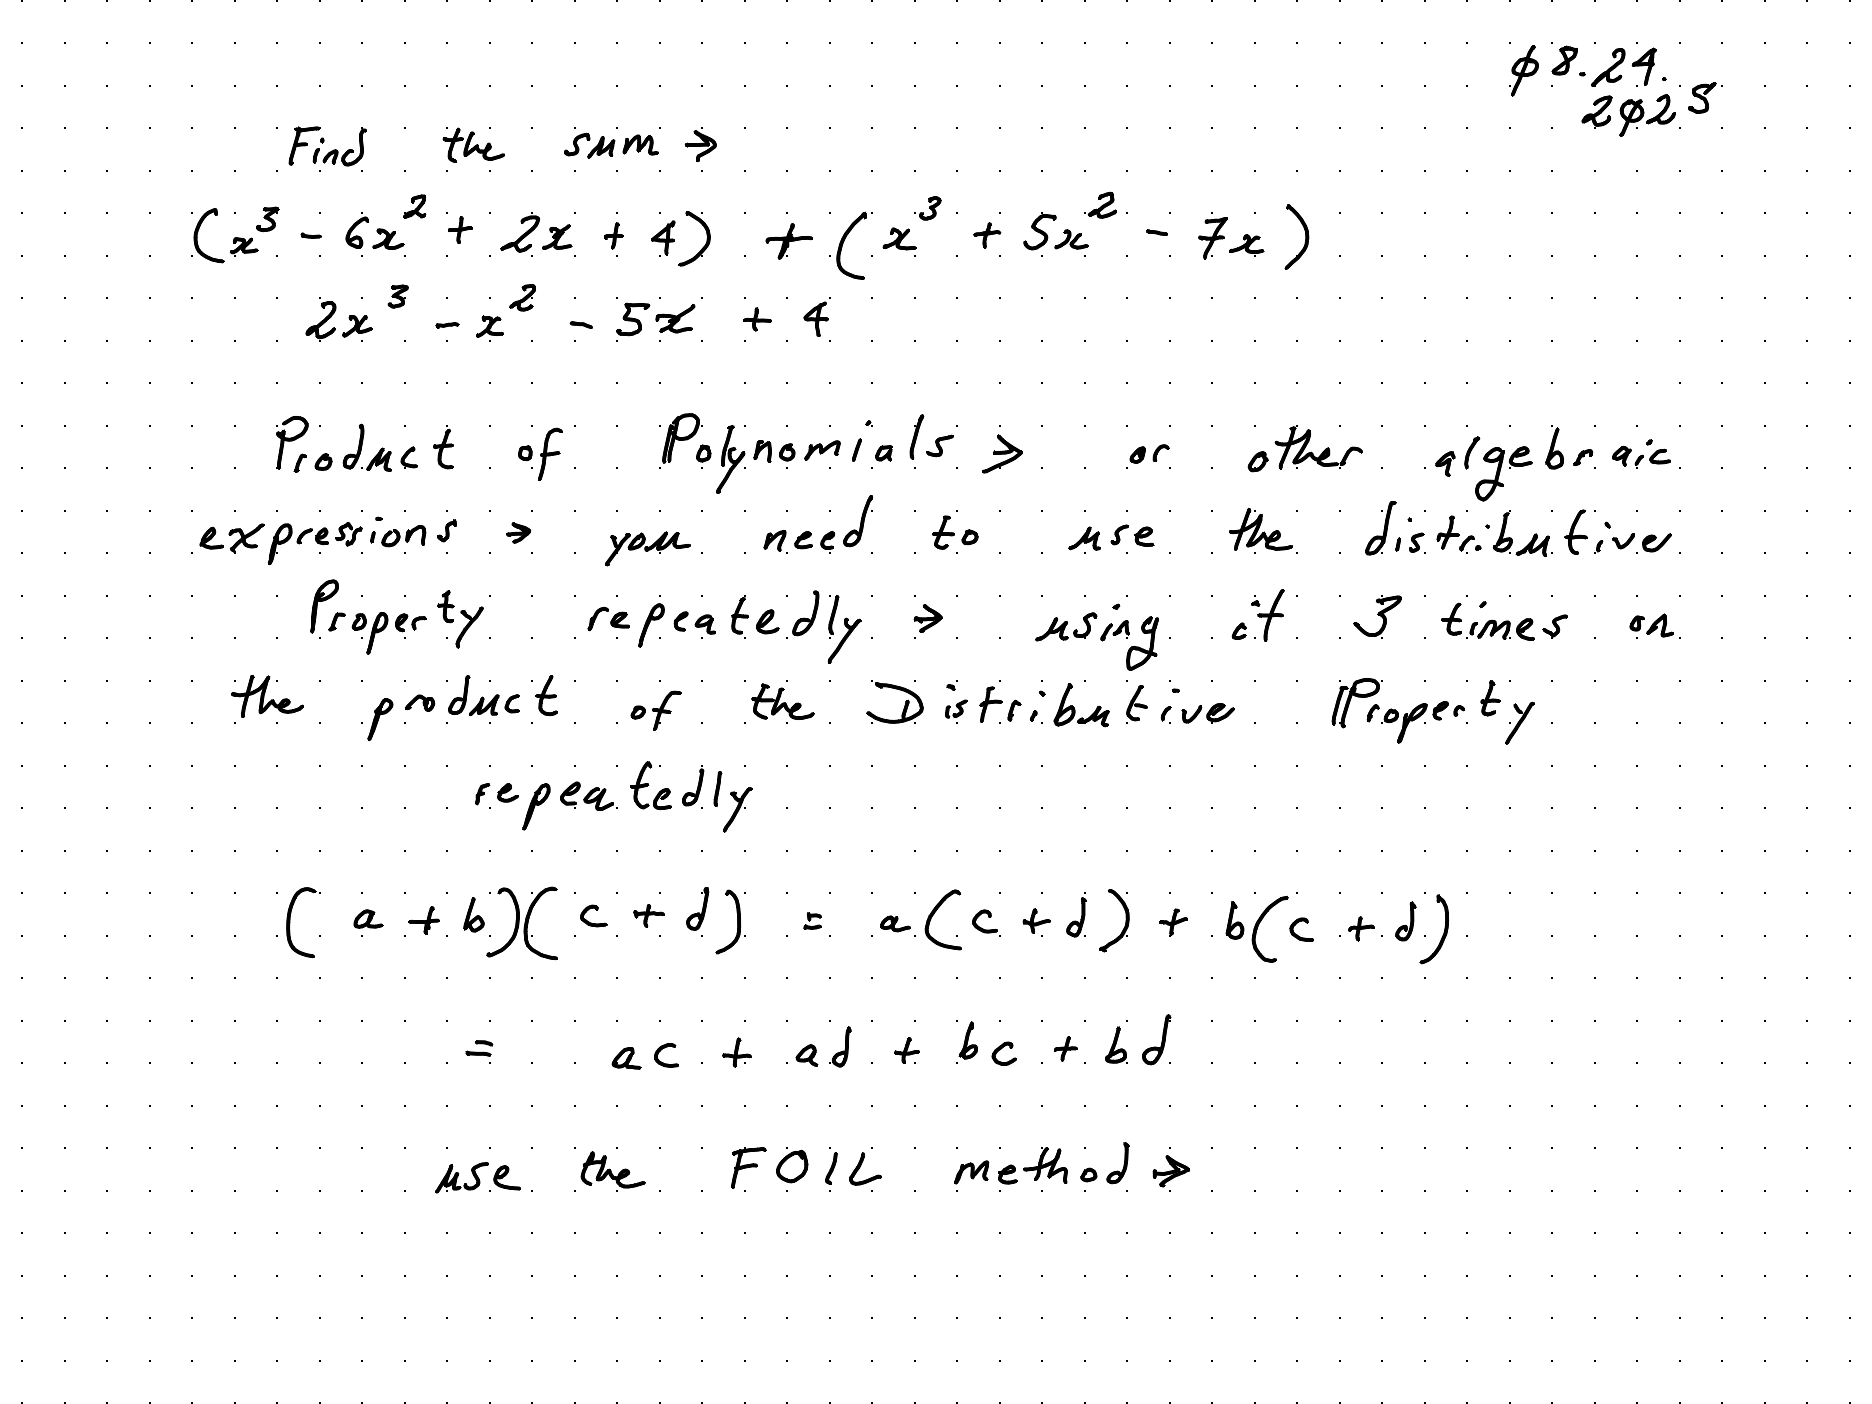 08.24.
2025
Find the sum →
(x³ - 6x² + 2x + 4) + (x³ + 5x² - 7x)
2x³ - x² - 5x + 4
Product of Polynomials > or other algebraic
expressions → you need to use the distributive
Property repeatedly → using it 3 times on
the product of the Distributive Property
repeatedly
(a + b)(c + d) = a(c + d) + b(c + d)
= ac + ad + bc + bd
use the FOIL method →